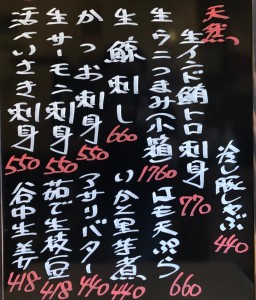 天然
生インド鮪トロ刺身 770
生うにつまみ(小箱) 1760
生鯨刺し 660
かつお刺身 550
生サーモン刺身 550
活〆いさき刺身 550
冷し豚しゃぶ 440
はも天ぷら 660
いかと里芋煮 440
アサリバター 440
茹で生枝豆 418
谷中生姜 418